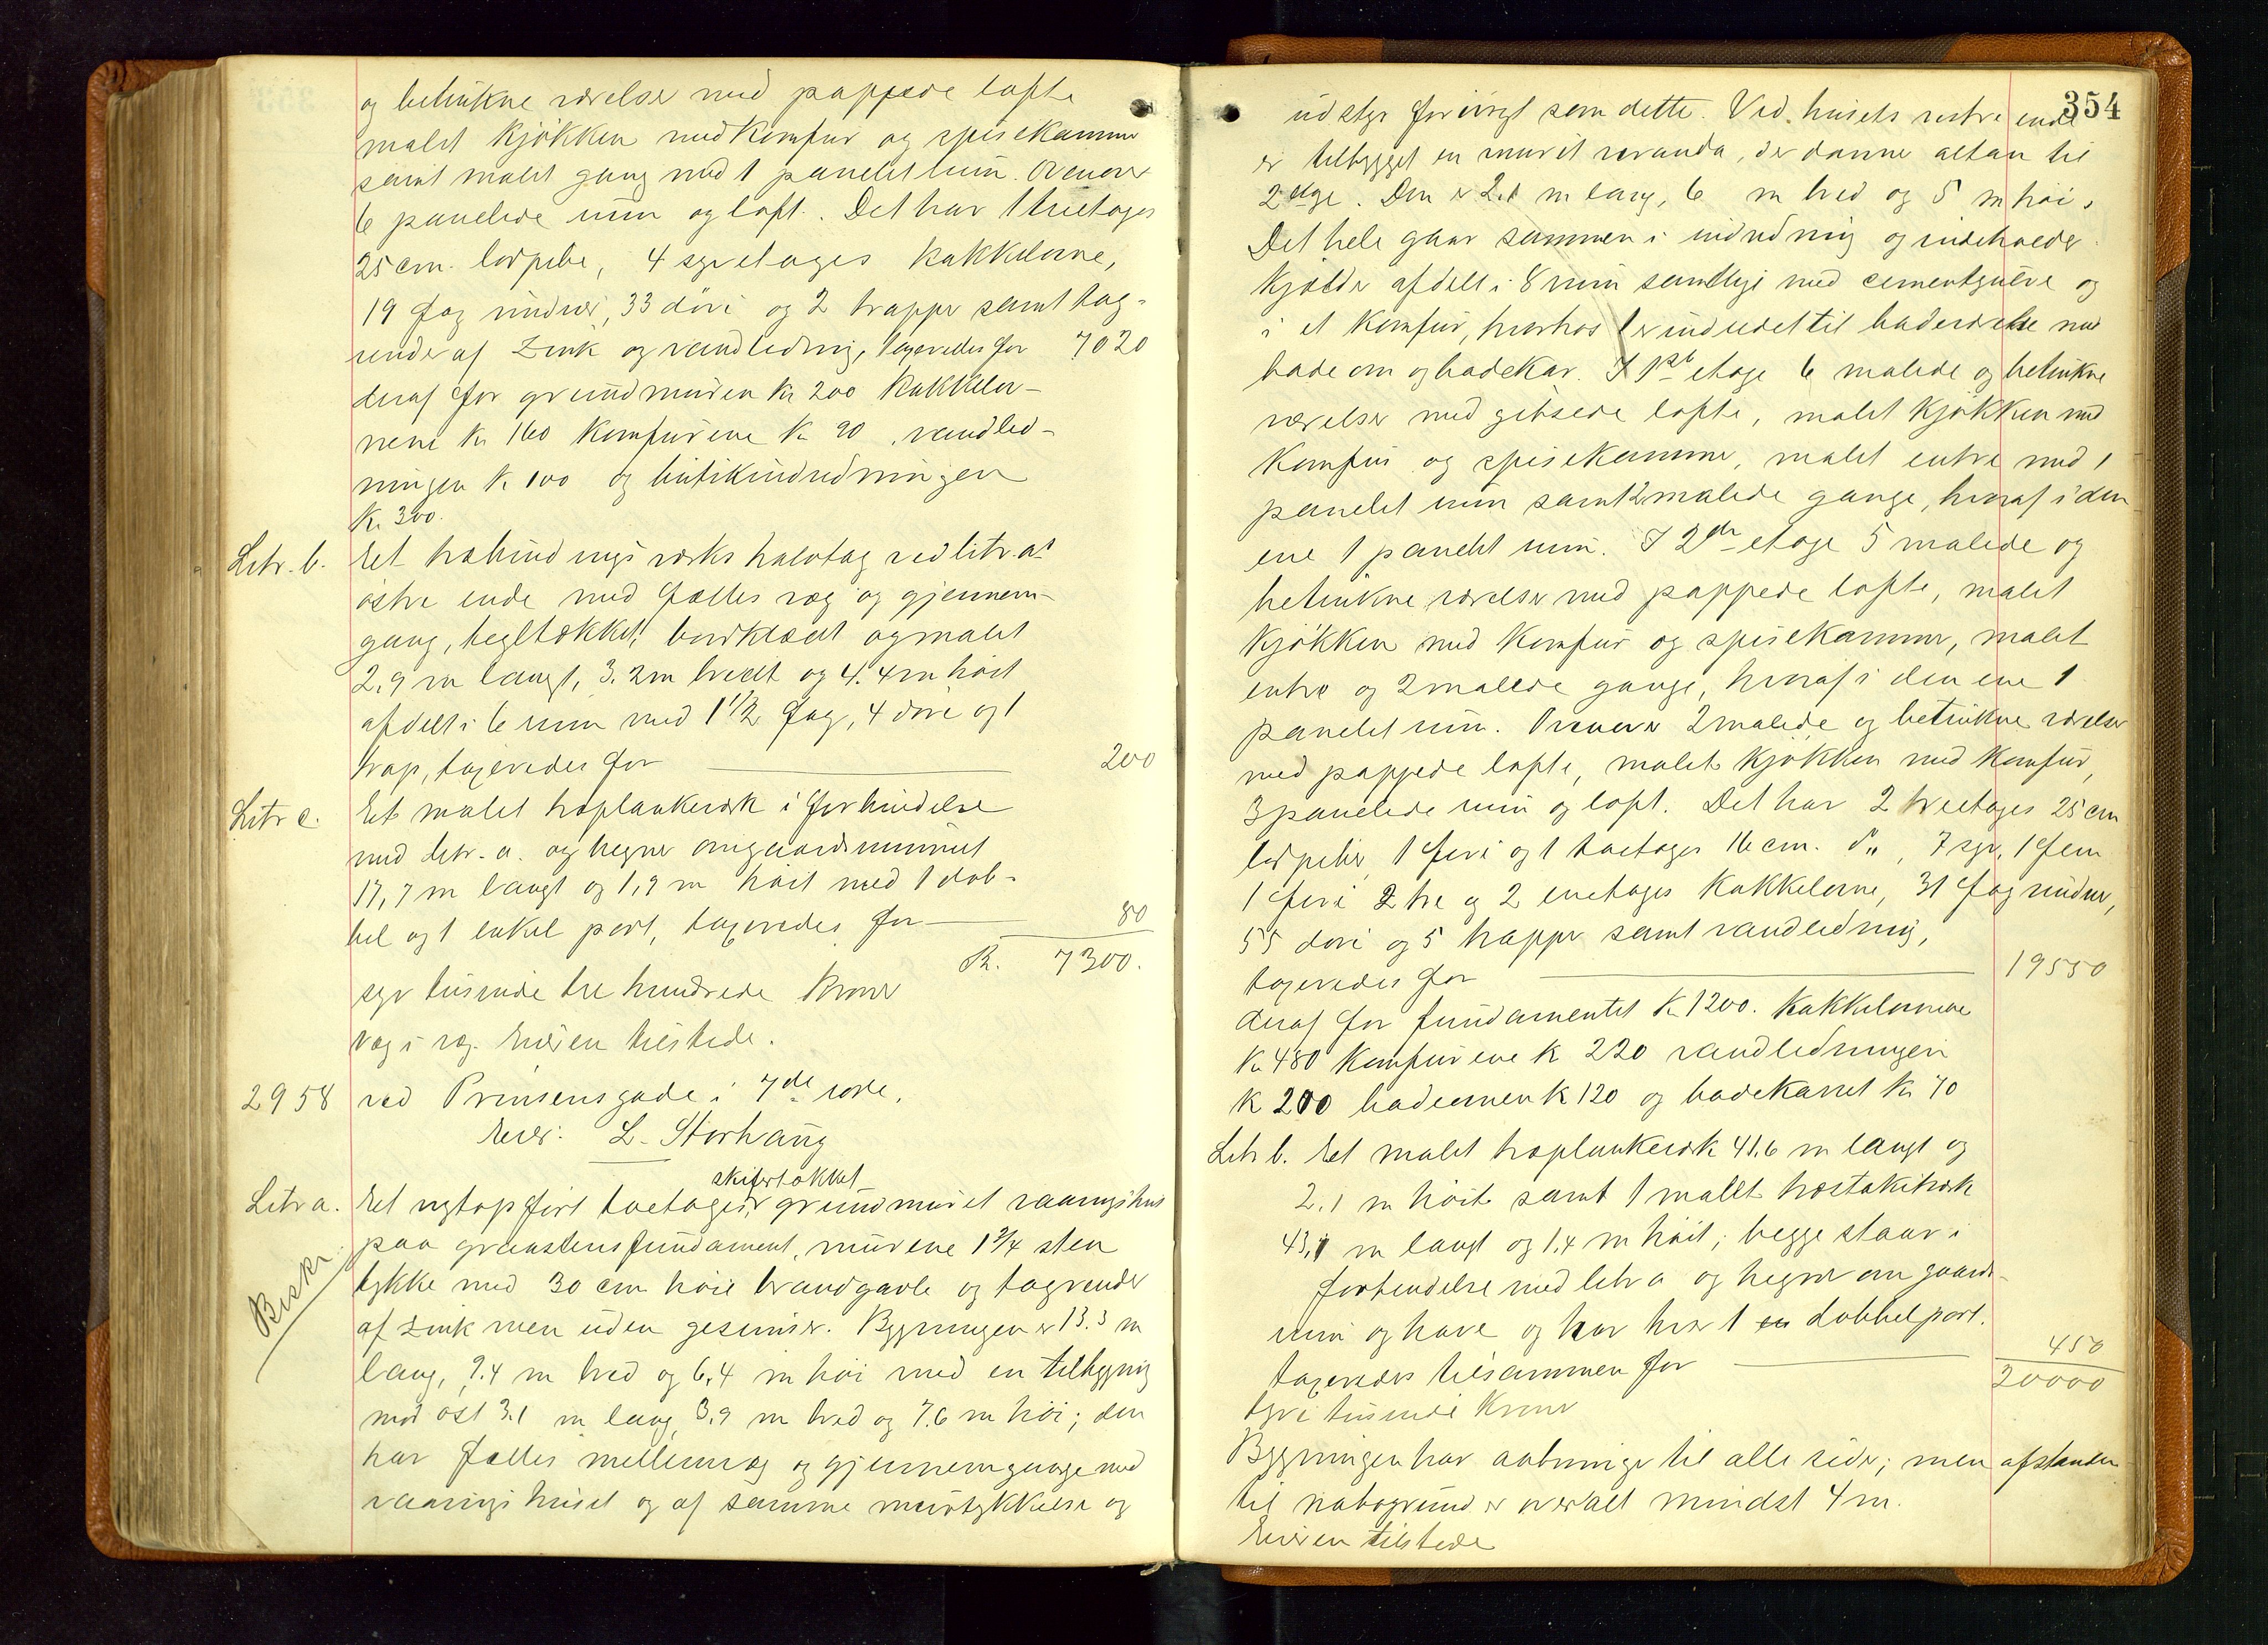 og betrukne værelser med pappede lofte
malet kjøkken med komfur og spisekammer
samt malet gang med 1 panelet rum. Ovenover
6 panelede rum og loft. Det har 1 treetages
25 cm. lodpibe, 4 syvetages kakkelovne,
19 fag vinduer, 33 døre og 2 trapper samt tag-
render af zink og vandledning, taxeredes for 7020
deraf for grundmuren Kr 200 kakkelov-
nene Kr 160 komfurene Kr 90, vandled-
ningen Kr 100 og butikindredningen
Kr. 300.
Litr. b. Et træbindingsværks halvtag ved litr. a's
østre ende med fælles væg og gjennem-
gang, tegltækket, bordklædt og malet
2.9 m langt, 3.2 m bredt og 4.4 m høit
afdelt i 6 rum med 1 1/2 fag, 4 døre og 1
trap, taxeredes for 200
Litr c. Et malet træplankeværk i forbindelse
med litr. a. og hegner om gaardsrummet
17,7 m langt og 1,9 m høit med 1 dob-
bel og 1 enkel port, taxeredes for 80
Kr. 7300.
syv tusinde tre hundrede kroner
væg i væg. Eieren tilstede.
2958 ved Prinsensgade i 7de rode.
Eier: L. Storhaug
skifertækket
Litr a. Et nyt opført toetages, grundmuret vaaningshus
Beskr.
paa graastensfundament, murene 1 3/4 sten
tykke med 30 cm høie brandgavle og tagrender
af zink men uden gesimser. Bygningen er 13.3 m
lang, 9.4 m bred og 6,4 m høi med en tilbygning
mod øst 3.1 m lang, 3,9 m bred og 7.6 m høi; den
har fælles mellemvæg og gjennemgange med
vaaningshuset og af samme murtykkelse og
354
udstyr forøvrigt som dette. Ved husets vestre ende
er tilbygget en muret veranda, der danner altan til
2 etage. Den er 2.1 m lang, 6 m bred og 5 m høi.
Det hele gaar sammen i indredning og indeholder
kjælder afdelt i 8 rum samtlige med cementgulve og
i et komfur, hvorhos 1 er indredet til badeværelse med
badeovn og badekar. I 1ste etage 6 malede og betrukne
værelser med gibsede lofte, malet kjøkken med
komfur og spisekammer, malet entre med 1
panelet rum samt 2 malede gange, hvoraf i den
ene 1 panelet rum. I 2den etage 5 malede og
betrukne værelser med pappede lofte, malet
kjøkken med komfur og spisekammer, malet
entre og 2 malede gange, hvoraf i den ene 1
panelet rum. Ovenover 2 malede og betrukne værelser
med pappede lofte, malet kjøkken med komfur,
3 panelede rum og loft. Det har 2 treetages 25 cm
lodpiber, 1 fire og 1 toetages 16 cm. do, 7 syv, 1 fem
1 fire 2 tre og 2 enetages kakkelovne, 31 fag vinduer,
55 døre og 5 trapper samt vandledning,
taxeredes for 19550
deraf for fundamentet Kr 1200. kakkelovnene
Kr 480 komfurene Kr 220 vandledningen
Kr 200 badeovnen Kr 120 og badekarret Kr 70
Litr b. Et malet træplankeværk 41.6 m langt og
2.1 m høit samt 1 malet træstakitværk
43,1 m langt og 1.4 m høit; begge staar i
forbindelse med litr a og hegner om gaards-
rum og have og har hver 1 dobbelport.
taxeredes tilsammen for 450
20000
tyve tusinde kroner
Bygningen har aabninger til alle sider; men afstanden
til nabogrund er overalt mindst 4 m.
Eieren tilstede